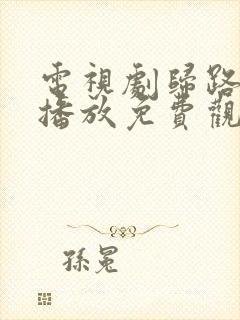 電視劇歸路
播放免費觀
孫冕